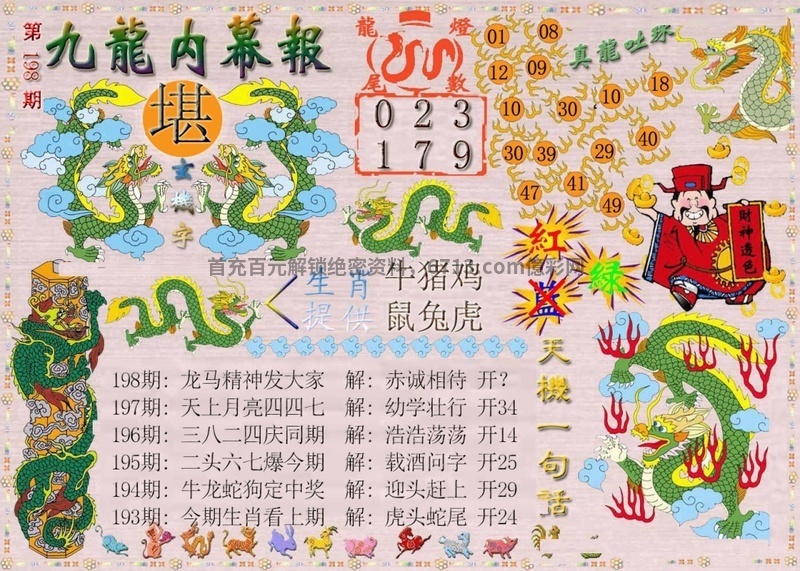 第198期
九龍内幕報
堪
玄機字
龍燈
尾數
0 2 3
1 7 9
01 08
12 09
10 30 10 18
30 39 29 40
47 41 49
真龍吐珠
財神透色
紅
藍
綠
生肖
提供
牛猪鸡
鼠兔虎
198期: 龙马精神发大家 解: 赤诚相待 开?
197期: 天上月亮四四七 解: 幼学壮行 开34
196期: 三八二四庆同期 解: 浩浩荡荡 开14
195期: 二头六七爆今期 解: 载酒问字 开25
194期: 牛龙蛇狗定中奖 解: 迎头赶上 开29
193期: 今期生肖看上期 解: 虎头蛇尾 开24
天機一句話